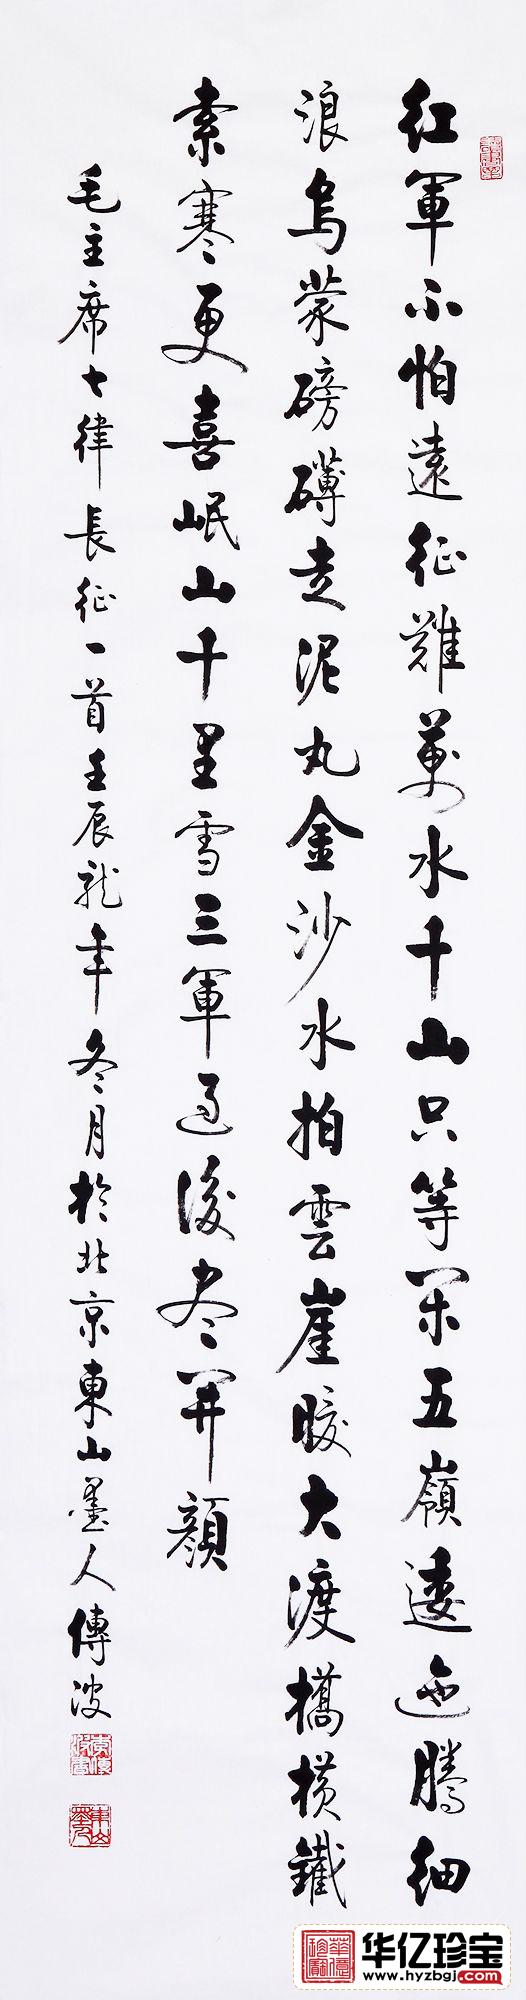 红軍不怕遠征難萬水千山只等闲五嶺逶迤騰细
浪烏蒙磅礴走泥丸金沙水拍雲崖暖大渡橋横鐵
索寒更喜岷山千里雪三軍过後尽开颜
毛主席七律長征一首壬辰龙年冬月於北京東山墨人傅波
华亿珍宝
www.hyzbgj.com